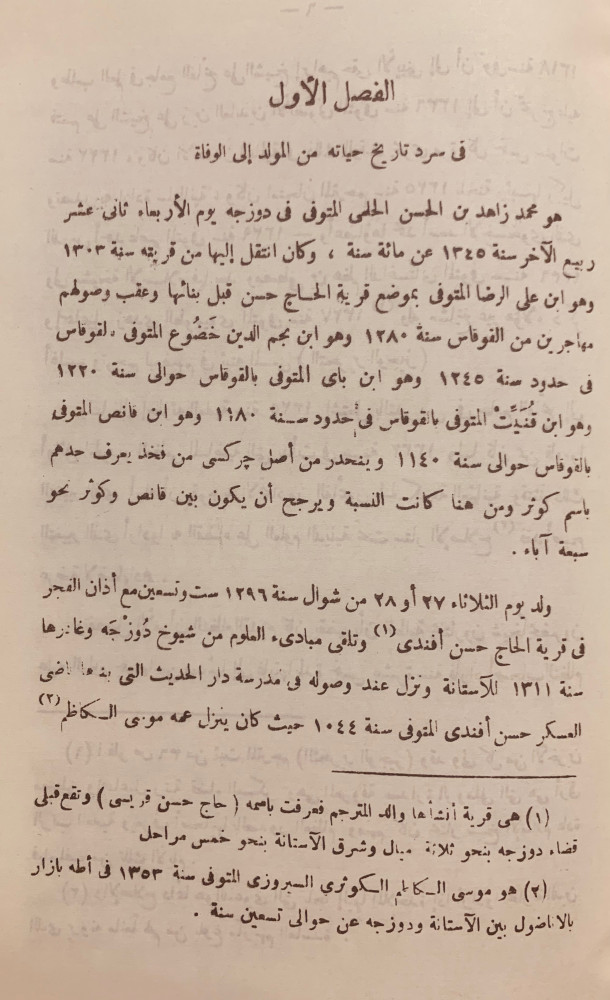 الفصل الأول
فى سرد تاريخ حياته من المولد إلى الوفاة
هو محمد زاهد بن الحسن الحلمى المتوفى فى دوزجه يوم الأربعاء ثانى عشر
ربيع الآخر سنة ١٣٤٥ عن مائة سنة ، وكان انتقل إليها من قريته سنة ١٣٠٣
وهو ابن على الرضا المتوفى بموضع قرية الحاج حسن قبل بنائها وعقب وصولهم
مهاجرين من القوقاس سنة ١٢٨٠ وهو ابن نجم الدين خَضُوع المتوفى بالقوقاس
فى حدود سنة ١٢٤٥ وهو ابن باى المتوفى بالقوقاس حوالى سنة ١٢٢٠
وهو ابن قُنَيْتْ المتوفى بالقوقاس فى حدود سنة ١١٨٠ وهو ابن قانص المتوفى
بالقوقاس حوالى سنة ١١٤٠ وينحدر من أصل چركسى من فخذ يعرف جدهم
باسم كوثر ومن هنا كانت النسبة ويرجح أن يكون بين قانص وكوثر نحو
سبعة آباء .
ولد يوم الثلاثاء ٢٧ أو ٢٨ من شوال سنة ١٢٩٦ ست وتسعين مع أذان الفجر
فى قرية الحاج حسن أفندى (١) وتلقى مبادىء العلوم من شيوخ دُوزْجَه وغادرها
سنة ١٣١١ للآستانة ونزل عند وصوله فى مدرسة دار الحديث التى بناها قاضى
العسكر حسن أفندى المتوفى سنة ١٠٤٤ حيث كان ينزل عمه موسى الكاظم (٢)
(١) هى قرية أنشأها والد المترجم فعرفت باسمه ( حاج حسن قريسى ) وتقع قبلى
قضاء دوزجه بنحو ثلاثة أميال وشرق الآستانة بنحو خمس مراحل
(٢) هو موسى الكاظم الكوثرى السيروزى المتوفى سنة ١٣٥٣ فى أطه بازار
بالاناضول بين الآستانة ودوزجه عن حوالى تسعين سنة .